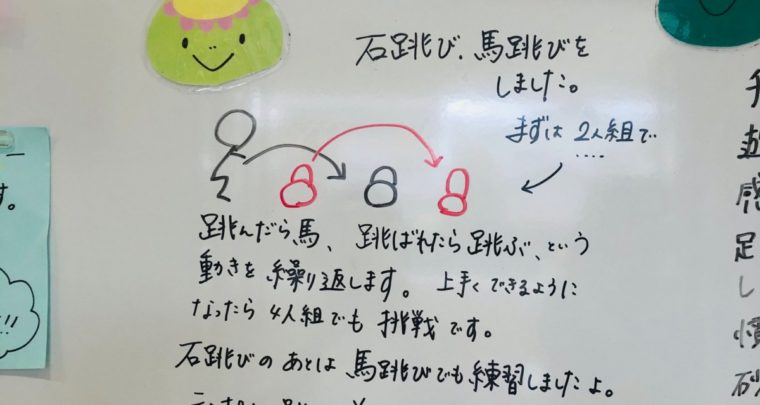 石跳び、馬跳びを
しました。
まずは 2人組で
‥‥
跳んだら馬、跳ばれたら跳ぶ、という
動きを繰り返します。 上手くできるように
なったら 4人組でも 挑戦です。
石跳びの あとは 馬跳びでも練習しましたよ。
す。
!!
感
足
し
慣
砂